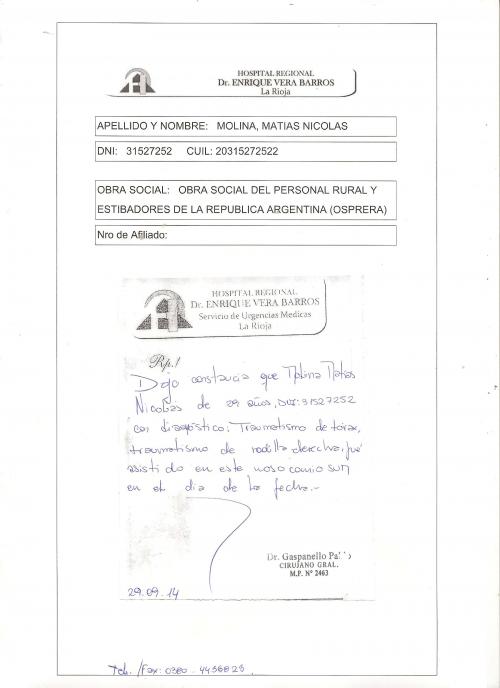 HOSPITAL REGIONAL
Dr. ENRIQUE VERA BARROS
La Rioja
APELLIDO Y NOMBRE: MOLINA, MATIAS NICOLAS
DNI: 31527252 CUIL: 20315272522
OBRA SOCIAL: OBRA SOCIAL DEL PERSONAL RURAL Y
ESTIBADORES DE LA REPUBLICA ARGENTINA (OSPRERA)
Nro de Afiliado:
HOSPITAL REGIONAL
Dr. ENRIQUE VERA BARROS
Servicio de Urgencias Medicas
La Rioja
Rp./
Dejo constancia que Molina Matias
Nicolas de 29 años, DNI: 31527252
con diagnóstico: Traumatismo de tórax,
traumatismo de rodilla derecha, fue
asistido en este nosocomio
en el dia de la fecha.-
Dr. Gaspanello
CIRUJANO GRAL.
M.P. Nº 2463
29.09.14
Tel. /Fax: 0380 - 4436828.